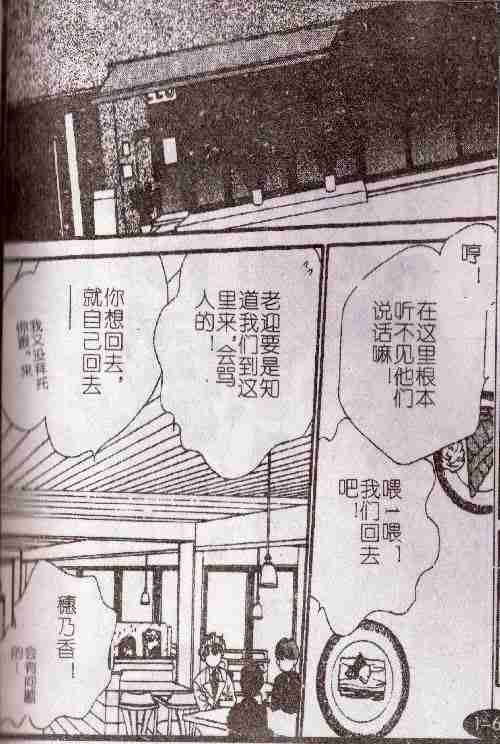 哼！
在这里根本
听不见他们
说话嘛！
喂！喂！
我们回去
吧！
老迎要是知
道我们到这
里来，会骂
人的！
你想回去，
就自己回去
——
我又没拜托
你跟来
穗乃香！
会有问题
的！